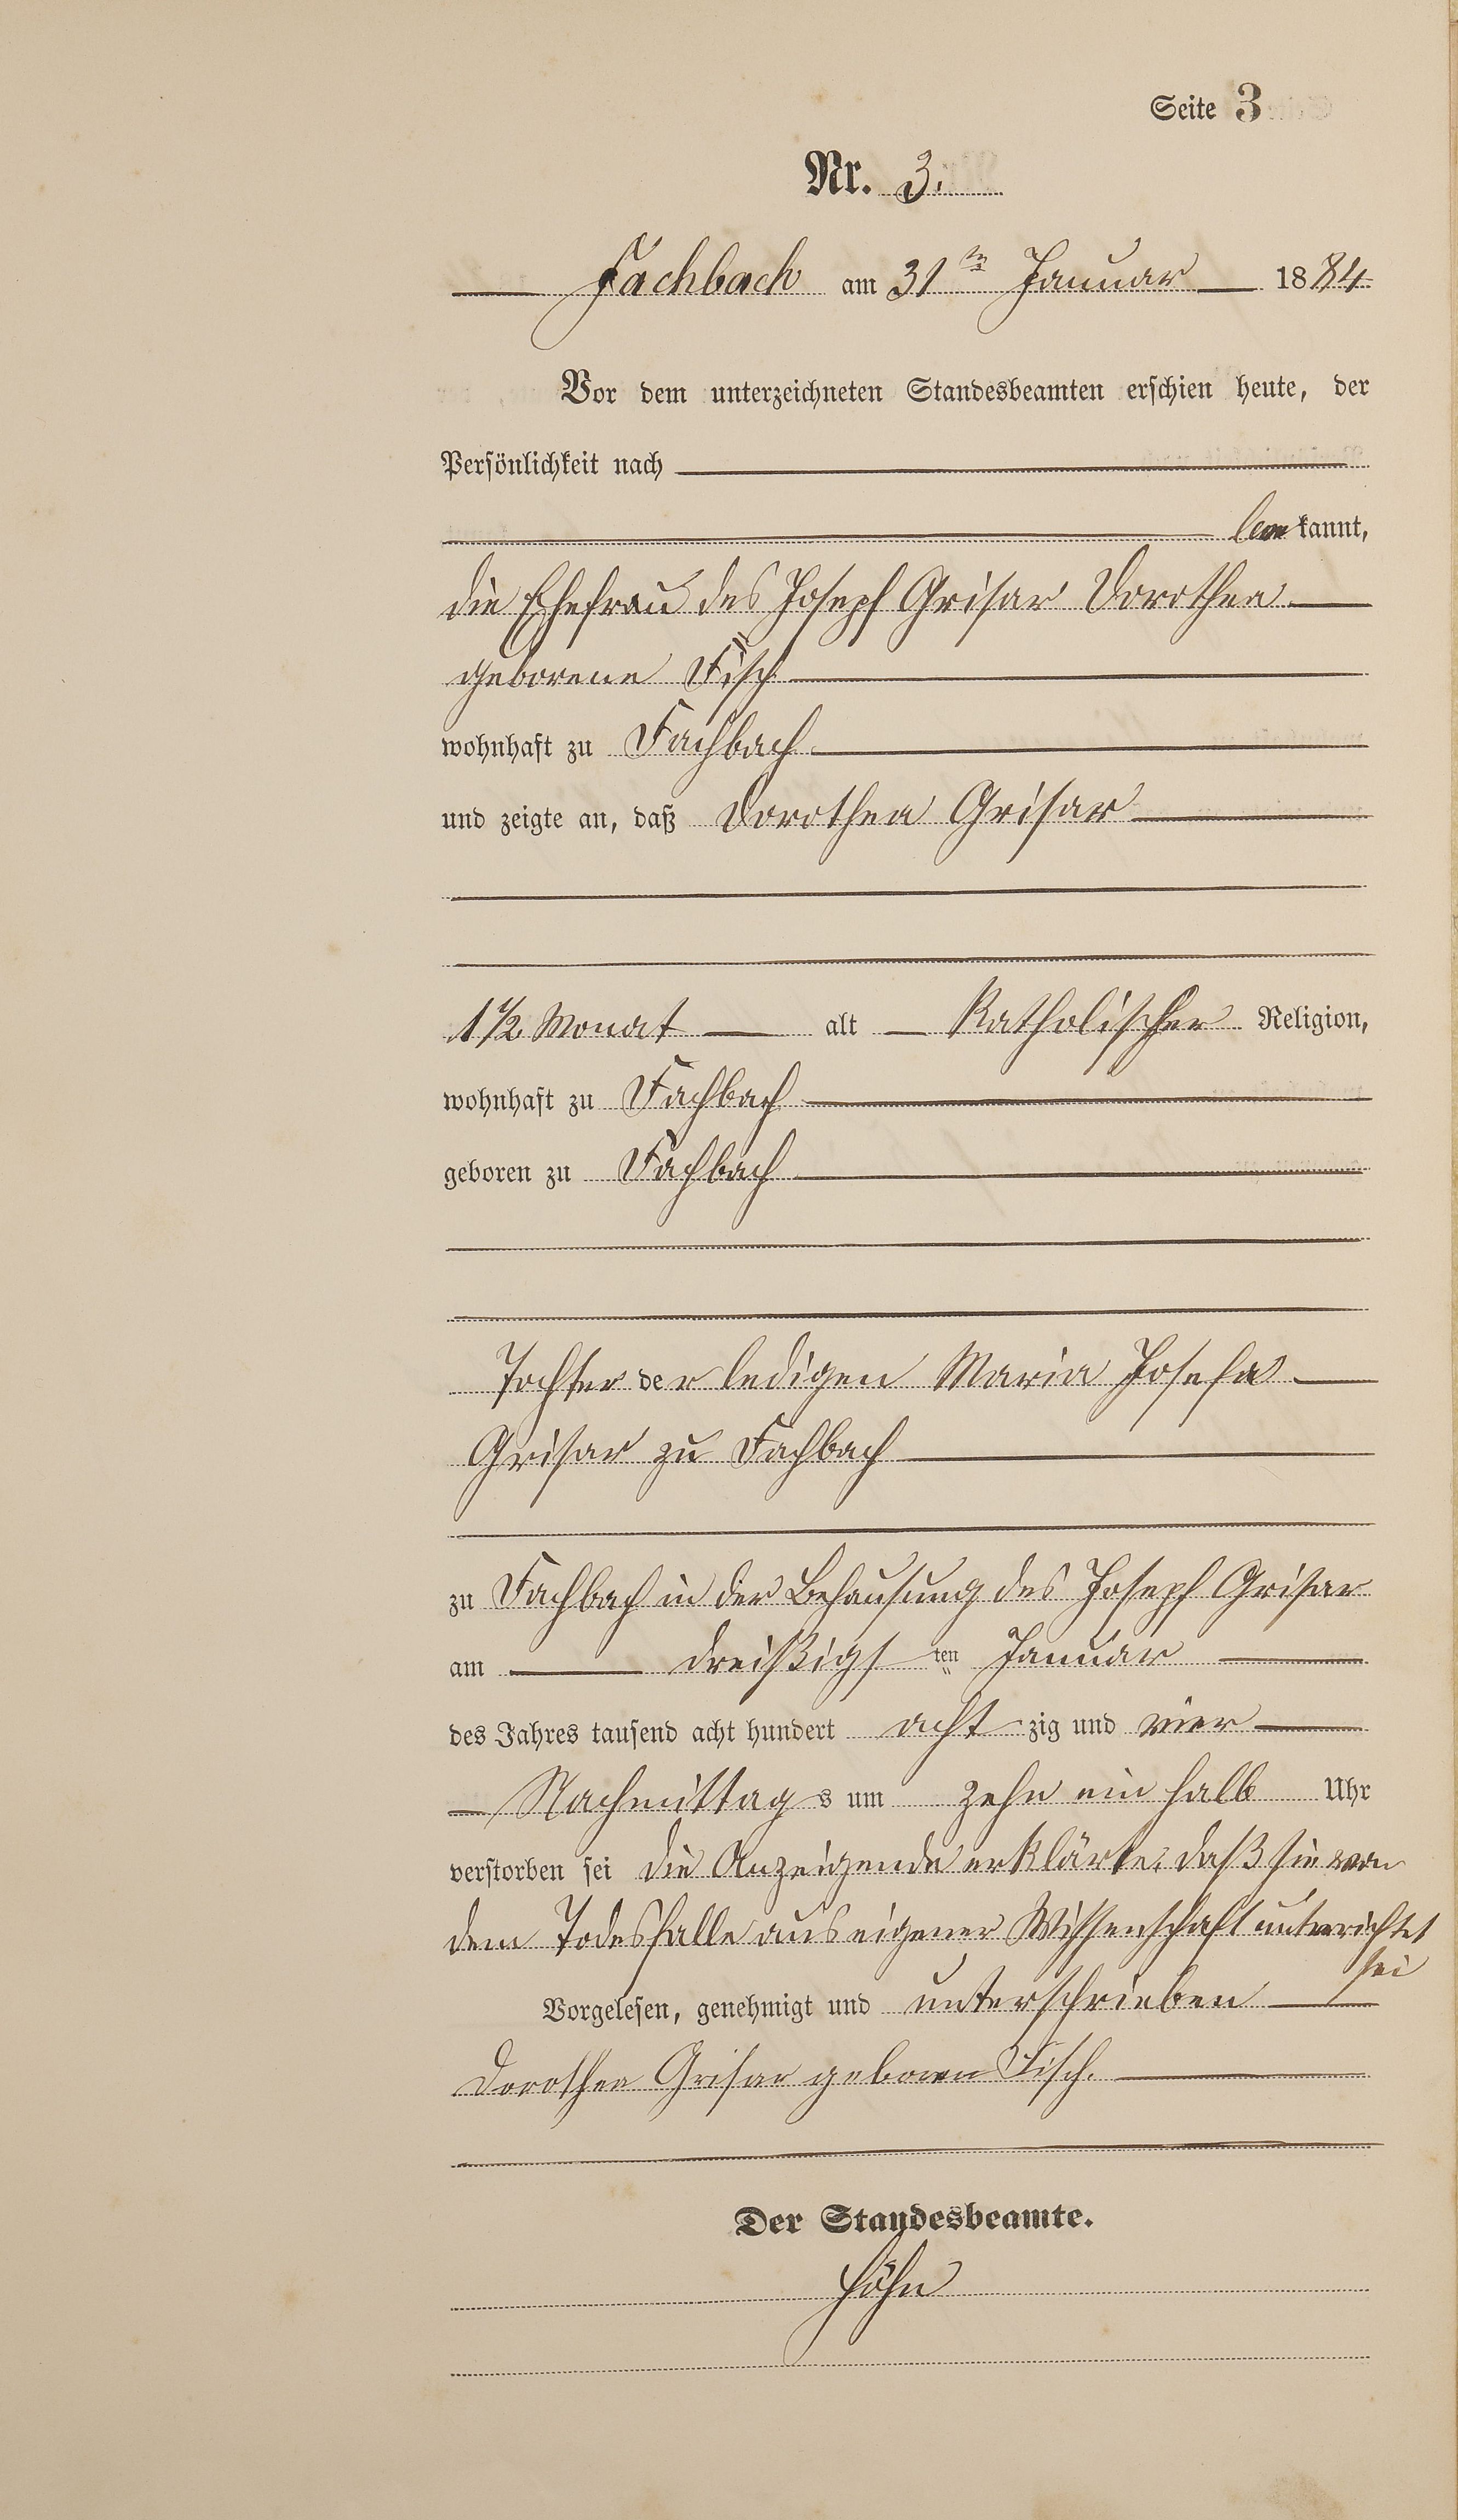 Seite 3
Nr. 3.
Fachbach am 31ten Januar 1884
Vor dem unterzeichneten Standesbeamten erschien heute, der
Persönlichkeit nach
kannt,
die Ehefrau des Joseph Grisar Dorothea
geborene Fisch
wohnhaft zu Fachbach
und zeigte an, daß Dorothea Grisar
1 1/2 Monat alt Katholischer Religion,
wohnhaft zu Fachbach
geboren zu Fachbach
Tochter der ledigen Maria Josefa
Grisar zu Fachbach
zu Fachbach in der Behausung des Joseph Grisar
am dreißigsten Januar
des Jahres tausend acht hundert achtzig und vier
Nachmittags um zehn ein halb Uhr
verstorben sei die Anzeigende erklärte, daß sie von
dem Todesfalle aus eigener Wissenschaft unterrichtet
sei
Vorgelesen, genehmigt und unterschrieben
Dorothea Grisar geboren Fisch.
Der Standesbeamte.
Höhn